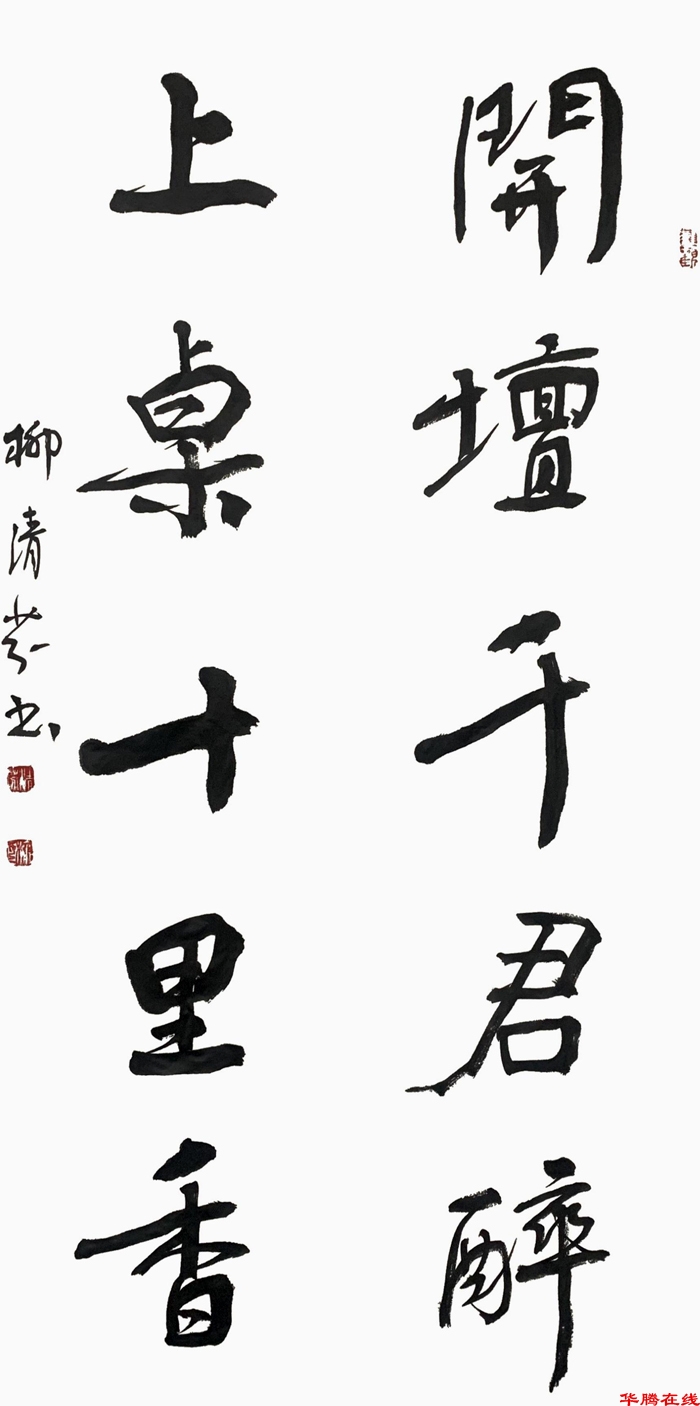 開壇千君醉
上桌十里香
柳清芬书
华腾在线